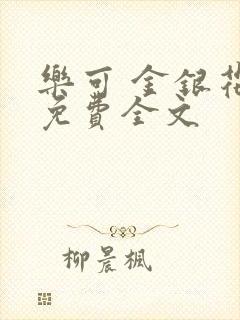 樂可 金銀花
免費全文
柳晨楓